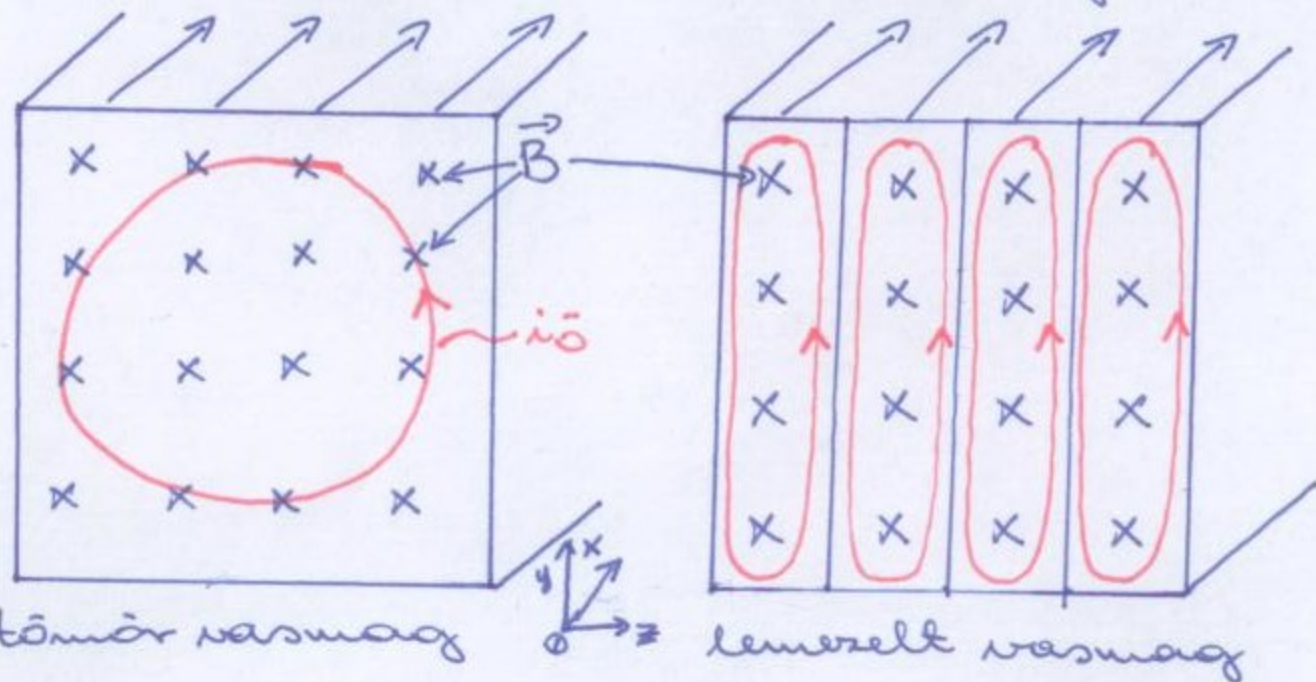 B
iö
y x
0 z
tömör vasmag
lemezelt vasmag